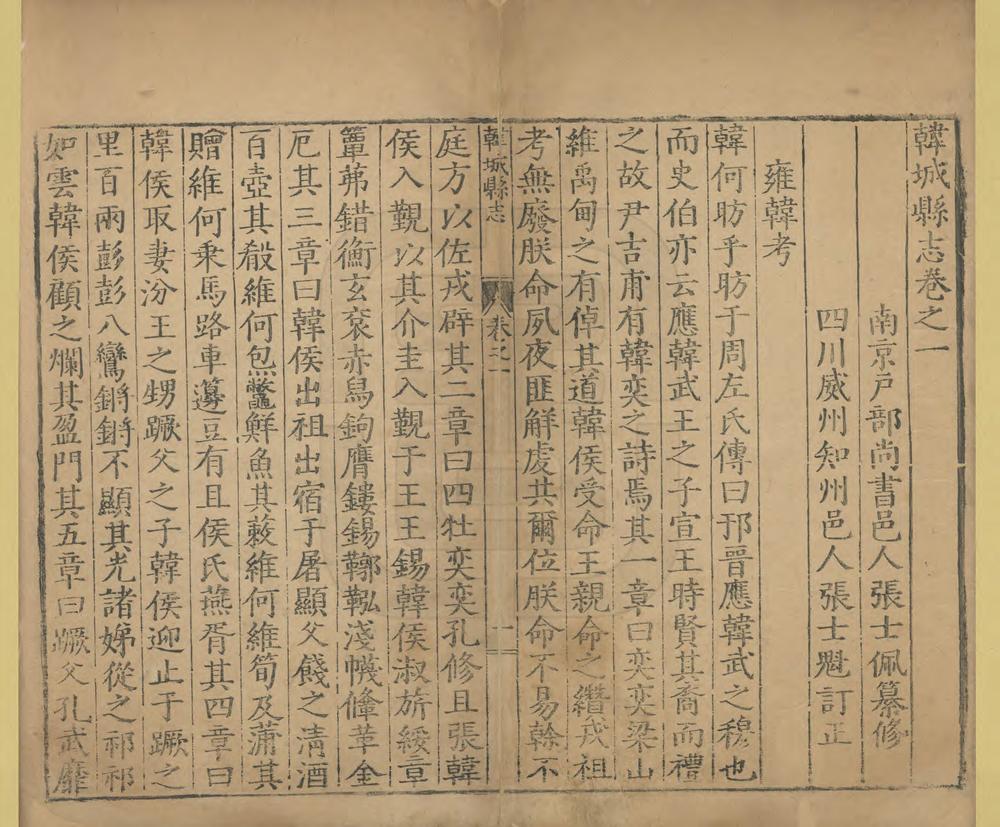 韓城縣志卷之一
南京戶部尚書邑人張士佩纂修
四川威州知州邑人張士魁訂正
雍韓考
韓何昉乎昉于周左氏傳曰邘晉應韓武之穆也
而史伯亦云應韓武王之子宣王時賢其裔而禮
之故尹吉甫有韓奕之詩焉其一章曰奕奕梁山
維禹甸之有倬其道韓侯受命王親命之纘戎祖
考無廢朕命夙夜匪解虔共爾位朕命不易榦不
韓城縣志 卷之一 一
庭方以佐戎辟其二章曰四牡奕奕孔修且張韓
侯入覲以其介圭入覲于王王錫韓侯淑旂綏章
簟茀錯衡玄袞赤舄鉤膺鏤錫鞹鞃淺幭鞗革金
厄其三章曰韓侯出祖出宿于屠顯父餞之清酒
百壺其殽維何炰鼈鮮魚其蔌維何維筍及蒲其
贈維何乘馬路車籩豆有且侯氏燕胥其四章曰
韓侯取妻汾王之甥蹶父之子韓侯迎止于蹶之
里百兩彭彭八鸞鏘鏘不顯其光諸娣從之祁祁
如雲韓侯顧之爛其盈門其五章曰蹶父孔武靡